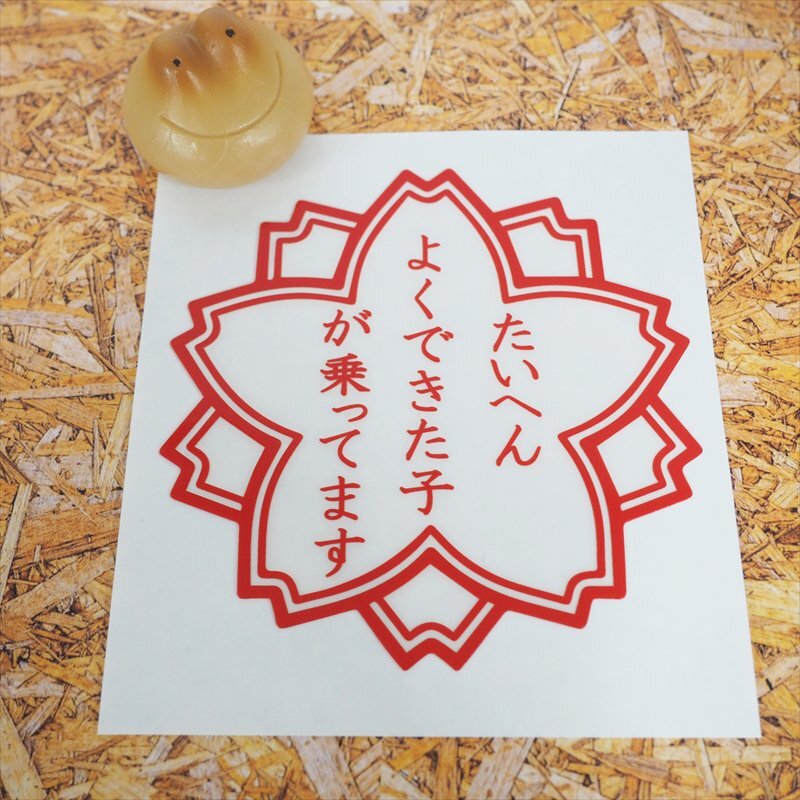 たいへん
よくできた子
が乗ってます